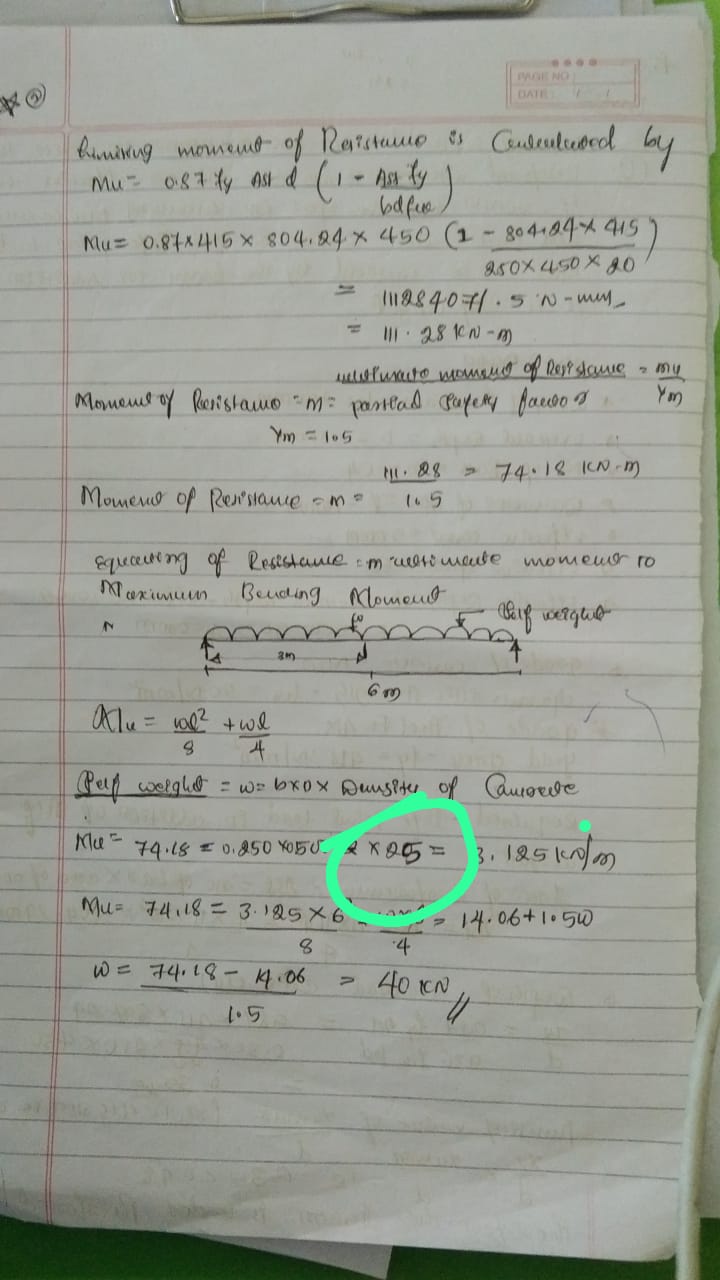 ②
PAGE NO :
DATE : / /
Limiting moment of Resistance is Calculated by
Mu = 0.87 fy Ast d (1 - Ast fy / bd fck)
Mu = 0.87 x 415 x 804.24 x 450 (1 - 804.24 x 415 / 250 x 450 x 20)
= 111284071.5 N-mm
= 111.28 KN-m
Moment of Resistance = M = ultimate moment of Resistance / partial safety factor = Mu / Ym
Ym = 1.5
Moment of Resistance = m = 111.28 / 1.5 = 74.18 KN-m
equating of Resistance = m ultimate moment to
Maximum Bending Moment
Self weight
3m
6m
Mu = wl² / 8 + wl / 4
Self weight = w = b x D x Density of Concrete
Mu = 74.18 = 0.250 x 0.50 x 25 = 3.125 kN/m
Mu = 74.18 = 3.125 x 6 / 8 / 4 = 14.06 + 1.5W
W = 74.18 - 14.06 / 1.5 = 40 KN